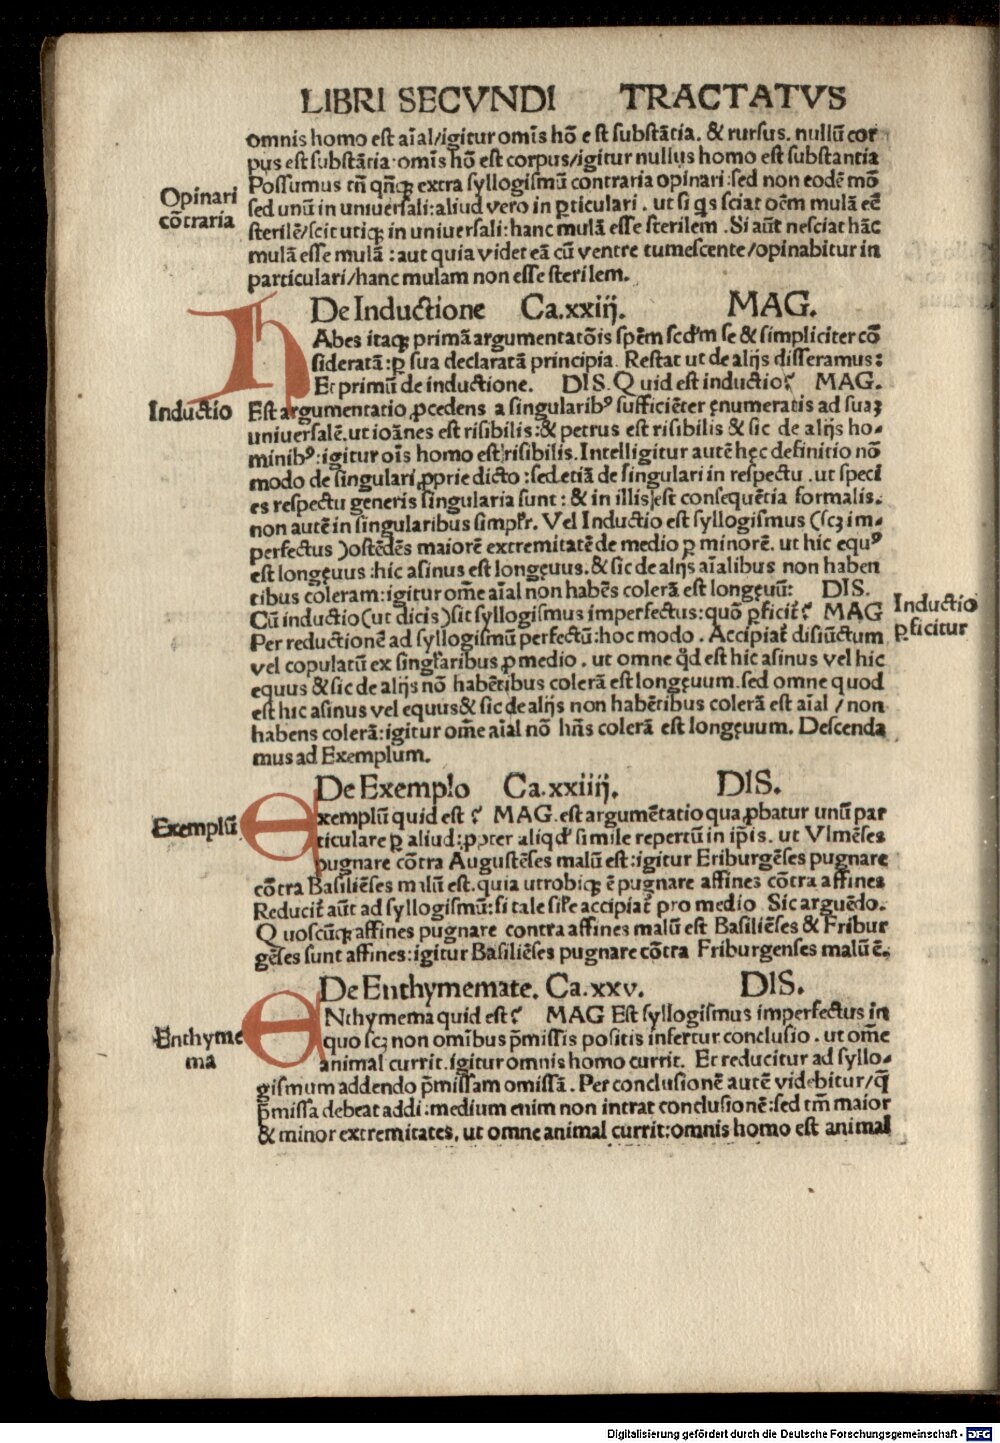 LIBRI SECVNDI TRACTATVS
omnis homo est aĩal/igitur omĩs hõ est substãtia. & rursus. nullũ cor
pus est substãtia·omĩs hõ est corpus/igitur nullus homo est substantia
Possumus tñ qñqꝫ extra syllogismũ contraria opinari:sed non eodẽ mõ
Opinari
cõtraria
sed unũ in uniuersali:aliud vero in ꝑticulari. ut si qs sciat oẽm mulã eẽ
sterilẽ/scit utiqꝫ in uniuersali:hanc mulã esse sterilem. Si aũt nesciat hãc
mulã esse mulã: aut quia videt eã cũ ventre tumescente/opinabitur in
particulari/hanc mulam non esse sterilem.
De Inductione Ca.xxiij. MAG.
HAbes itaqꝫ primã argumentatõis spẽm scdm se & simpliciter cõ
sideratã:ꝑ sua declaratã principia. Restat ut de alijs disseramus:
Et primũ de inductione. DIS. Quid est inductio? MAG.
Inductio
Est argumentatio ꝓcedens a singularibꝰ sufficiẽter ęnumeratis ad suaꝫ
uniuersalẽ.ut ioãnes est risibilis:& petrus est risibilis & sic de alijs ho-
minibꝰ:igitur oĩs homo est risibilis. Intelligitur autẽ hęc definitio nõ
modo de singulari ꝓprie dicto:sed etiã de singulari in respectu. ut speci
es respectu generis singularia sunt: & in illis est consequẽtia formalis.
non autẽ in singularibus simplr. Vel Inductio est syllogismus (scꝫ im-
perfectus) ostẽdẽs maiorẽ extremitatẽ de medio ꝑ minorẽ. ut hic equꝰ
est longęuus:hic asinus est longęuus.& sic de alijs aĩalibus non haben
tibus coleram:igitur oṁe aĩal non habẽs colerã est longęuũ: DIS.
Cũ inductio(ut dicis)sit syllogismus imperfectus:quõ ꝑficit̃? MAG
Inductio
ꝑficitur
Per reductionẽ ad syllogismũ perfectũ:hoc modo. Accipiat̃ disiũctum
vel copulatũ ex singlaribus ꝓ medio. ut omne qd est hic asinus vel hic
equus & sic de alijs nõ habẽtibus colerã est longęuum.sed omne quod
est hic asinus vel equus& sic de alijs non habẽtibus colerã est aĩal/non
habens colerã:igitur oṁe aĩal nõ hñs colerã est longęuum. Descenda
mus ad Exemplum.
De Exemplo Ca.xxiiij. DIS.
Exemplũ
Exemplũ quid est? MAG. est argumẽtatio qua ꝓbatur unũ par
ticulare ꝑ aliud:ꝓpter aliqd simile repertũ in ip̃is. ut Vlmẽses
pugnare cõtra Augustẽses malũ est:igitur Friburgẽses pugnare
cõtra Basiliẽses malũ est.quia utrobiqꝫ ẽ pugnare affines cõtra affines
Reducit̃ aũt ad syllogismũ:si tale sile accipiat̃ pro medio Sic arguẽdo.
Quoscũqꝫ affines pugnare contra affines malũ est Basiliẽses & Fribur
gẽses sunt affines:igitur Basiliẽses pugnare cõtra Friburgenses malũ ẽ.
De Enthymemate. Ca.xxv. DIS.
ENthymema quid est? MAG Est syllogismus imperfectus in
Enthyme
ma
quo scꝫ non omĩbus p̃missis positis infertur conclusio. ut oṁe
animal currit.igitur omnis homo currit. Et reducitur ad syllo-
gismum addendo p̃missam omissã. Per conclusionẽ autẽ videbitur/q̃
p̃missa debeat addi:medium enim non intrat conclusionẽ:sed tm̃ maior
& minor extremitates, ut omne animal currit:omnis homo est animal
Digitalisierung gefördert durch die Deutsche Forschungsgemeinschaft - DFG